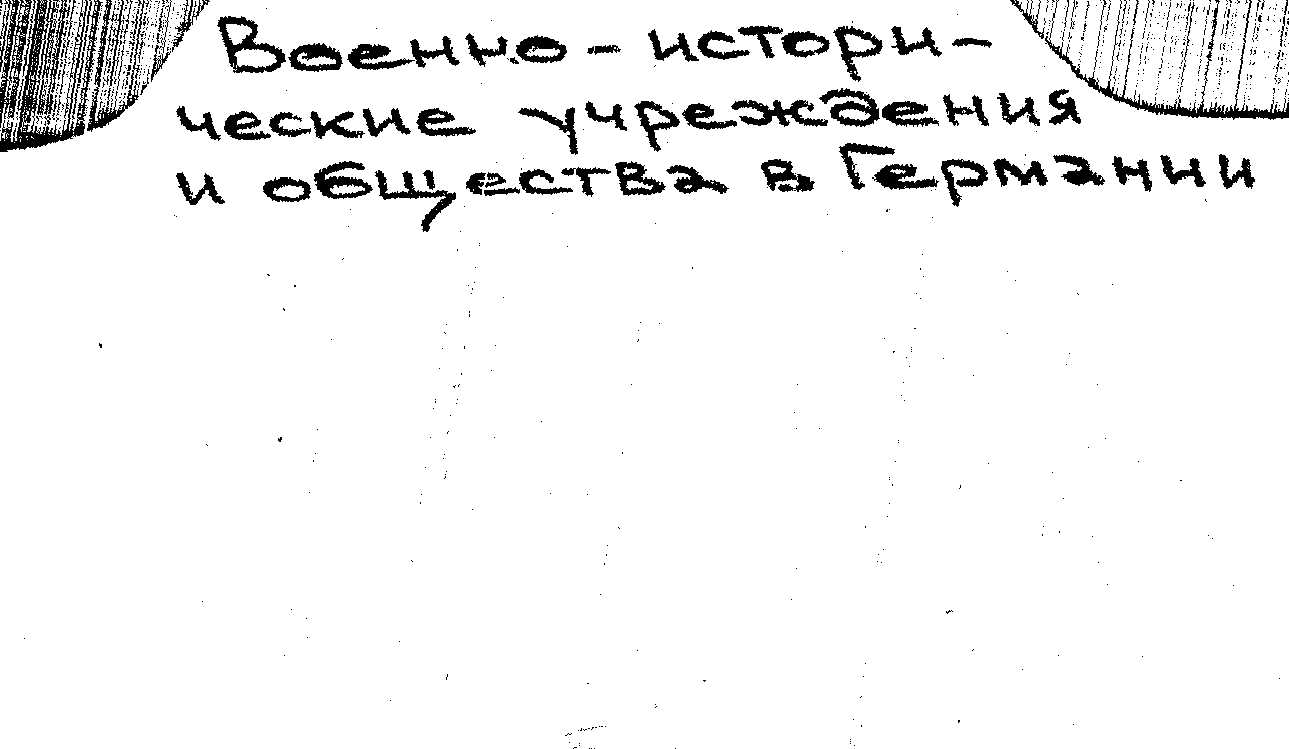 Военно-истори-
ческие учреждения
и общества в Германии